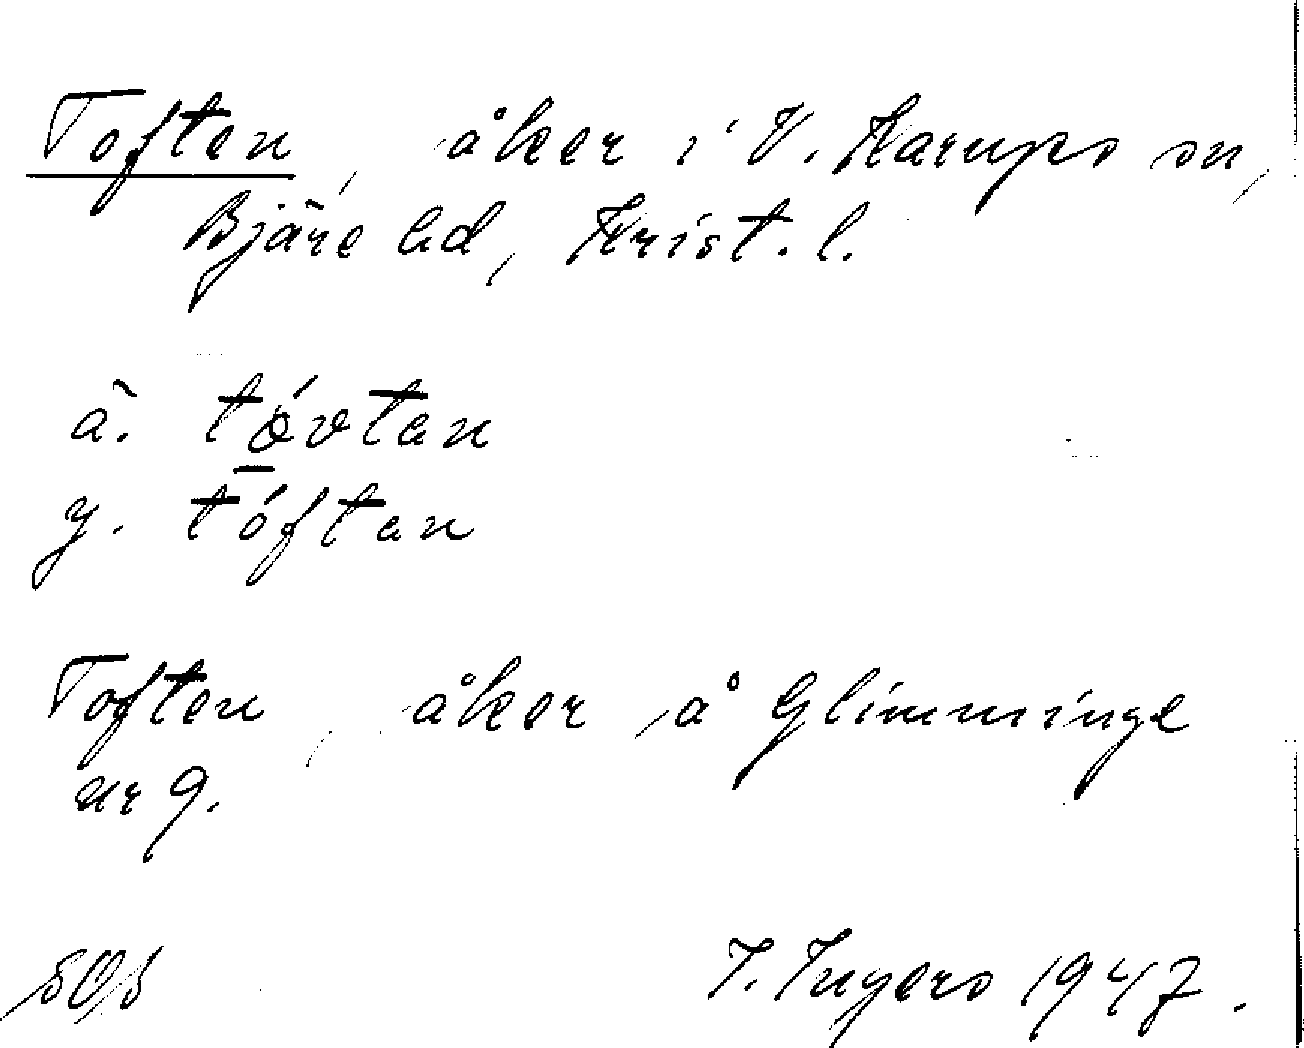 Toften, åker i V. Karups sn,
Bjäre hd, Krist. l.
ä. tóvtan
y. tóftan
Toften, åker å Glimminge
nr 9.
SOS
I. Ingers 1947.